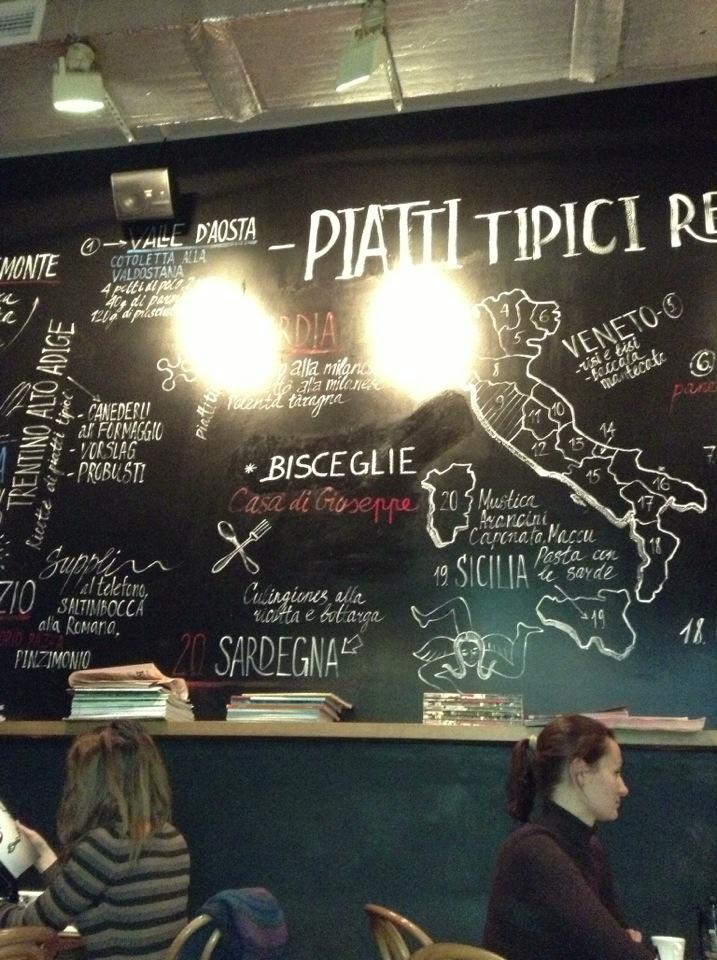 PIATTI TIPICI RE
1 → VALLE D'AOSTA
COTOLETTA ALLA
VALDOSTANA
MONTE
RDIA
alla milanese
alla milanese
Polenta taragna
TRENTINO ALTO ADIGE
Ricette di piatti tipici
- CANEDERLI
al FORMAGGIO
- VORSLAG
- PROBUSTI
VENETO - 5
- risi e bisi
- baccala
mantecato
6
pane
4
6
5
8
9
10
11
12
13
14
15
16
17
18
* BISCEGLIE
Casa di Giuseppe
20
Mustica
Arancini
Caponata, Maccu
Pasta con
le sarde
19 SICILIA
19
Supplì
al telefono,
SALTIMBOCCA
alla Romana,
ZIO
PINZIMONIO
Culingiones alla
ricotta e bottarga
20 SARDEGNA
18.